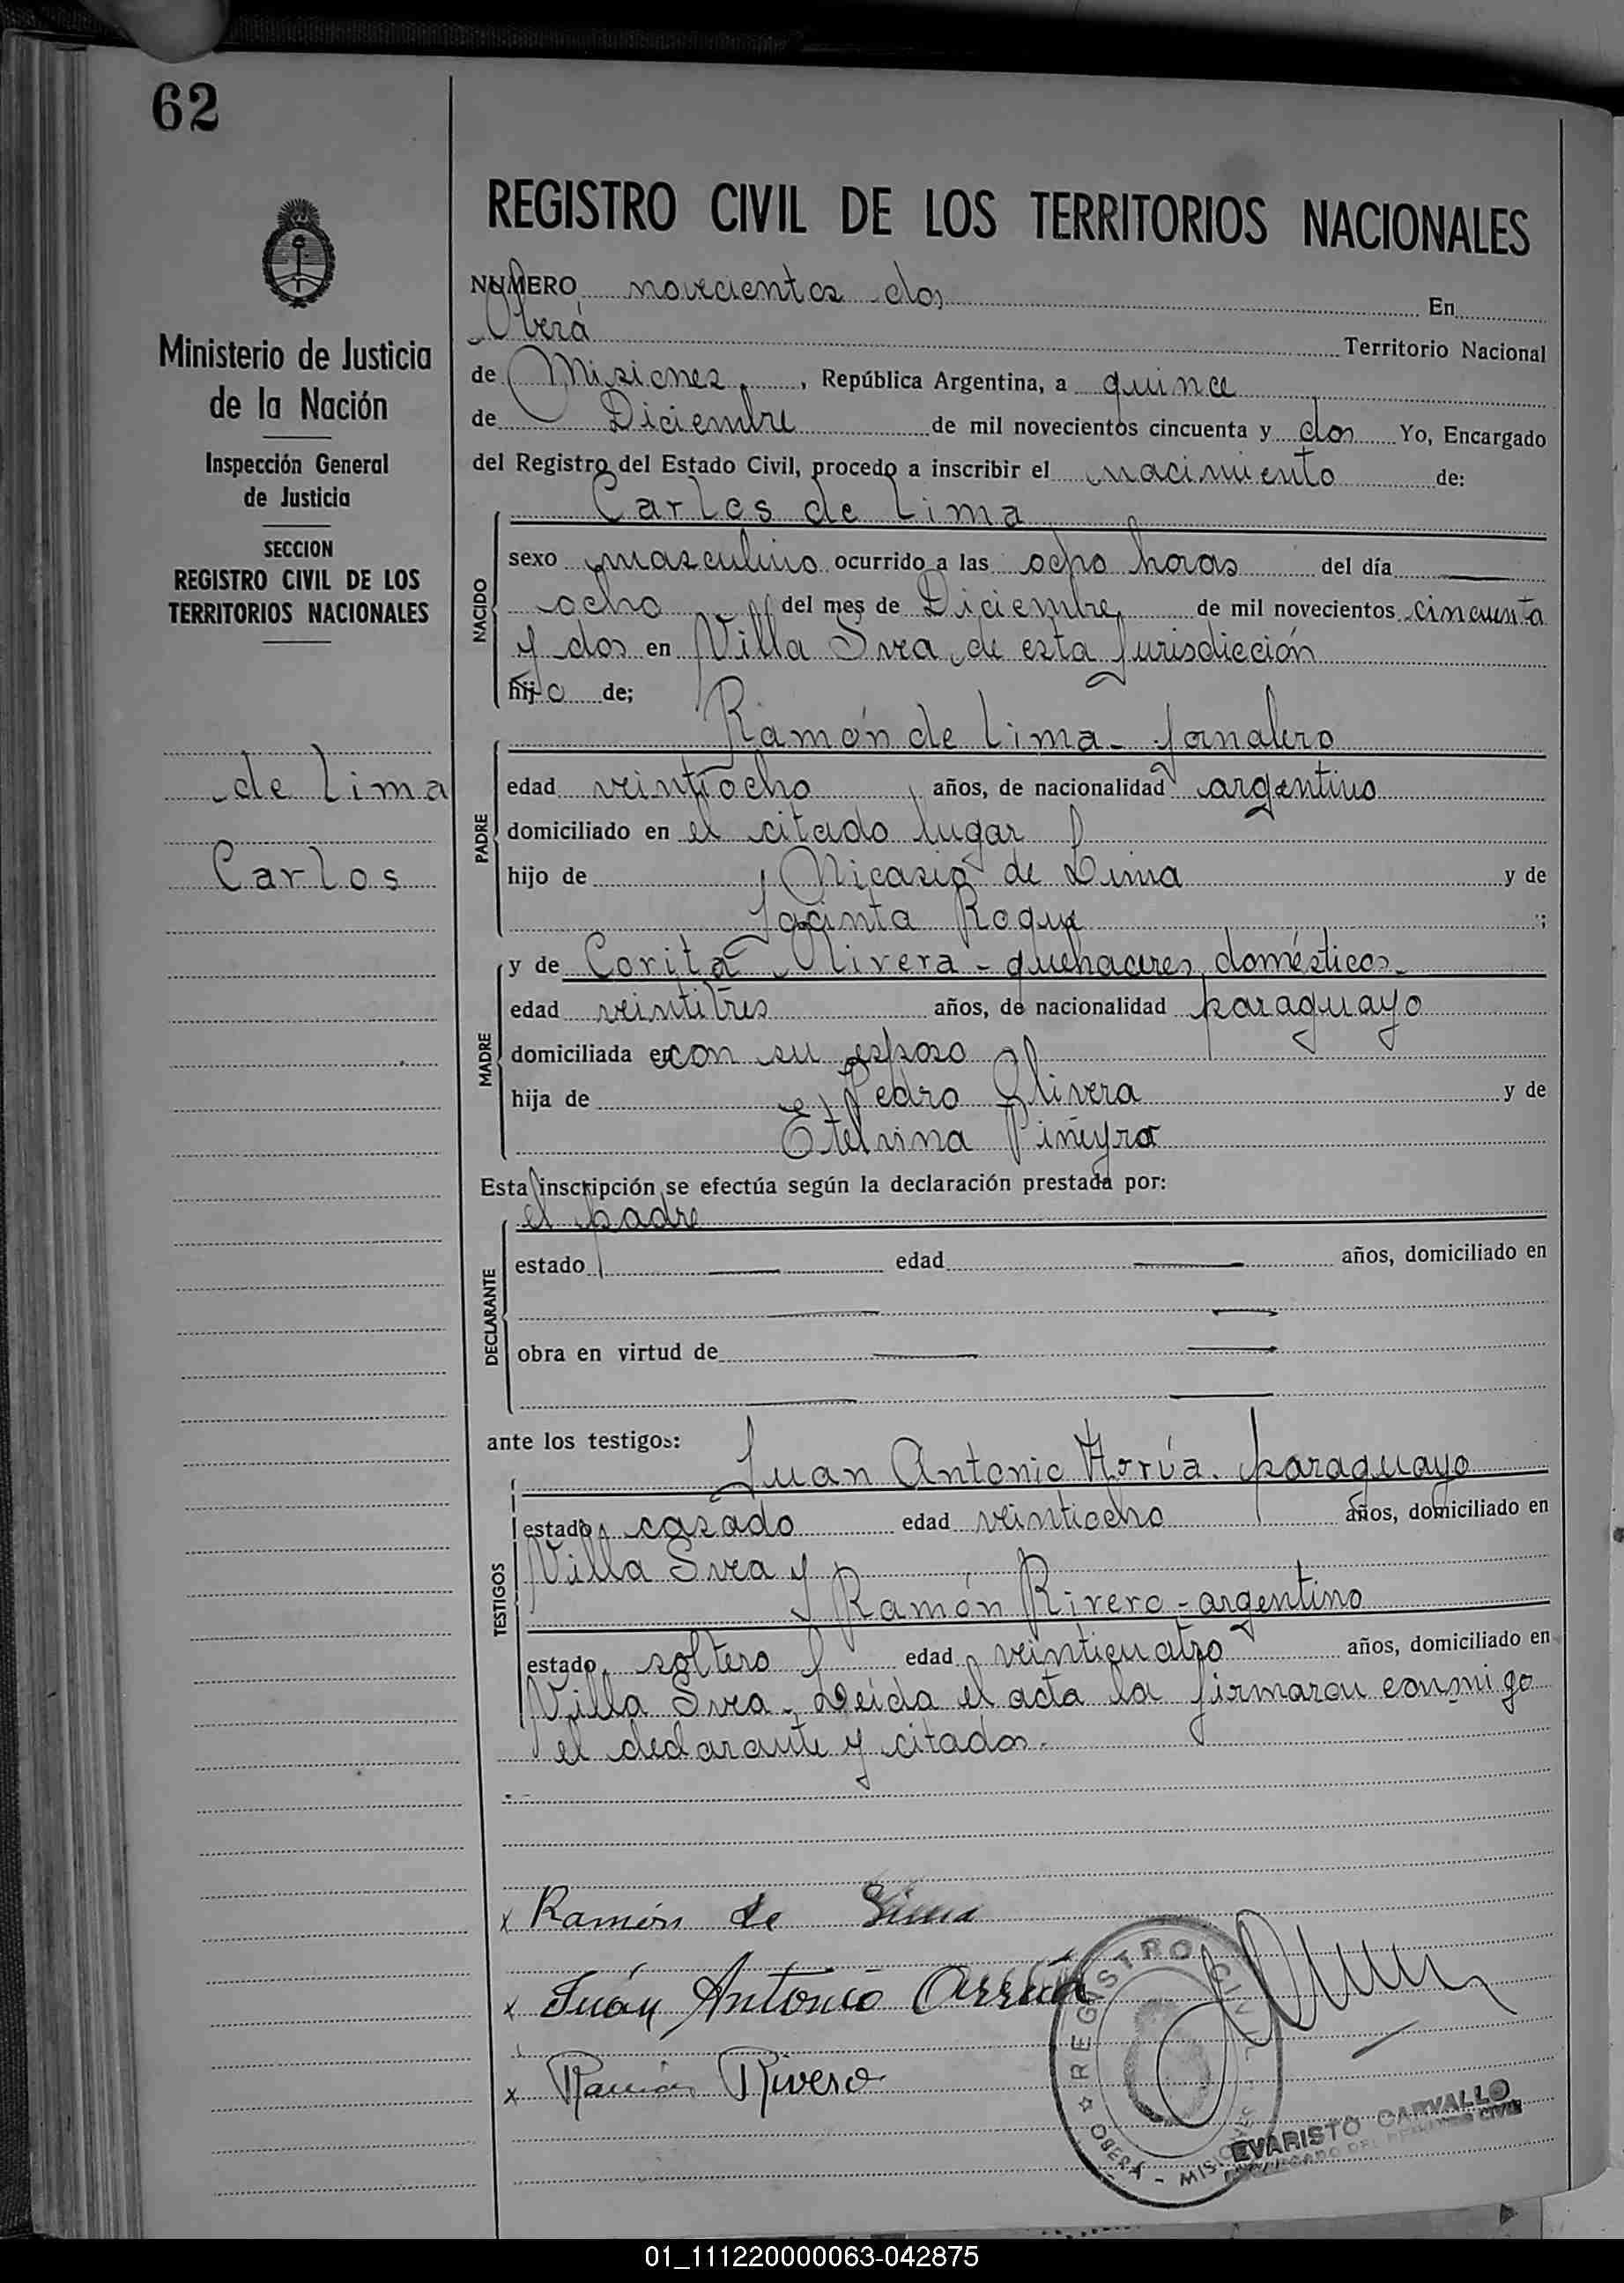 62
REGISTRO CIVIL DE LOS TERRITORIOS NACIONALES
Ministerio de Justicia
de la Nación
Inspección General
de Justicia
SECCION
REGISTRO CIVIL DE LOS
TERRITORIOS NACIONALES
de Lima
Carlos
NUMERO novecientos dos En
Oberá Territorio Nacional
de Misiones, República Argentina, a quince
de Diciembre de mil novecientos cincuenta y dos Yo, Encargado
del Registro del Estado Civil, procedo a inscribir el nacimiento de:
Carlos de Lima
NACIDO
sexo masculino ocurrido a las ocho horas del día
ocho del mes de Diciembre de mil novecientos cincuenta
y dos en Villa Svea, de esta Jurisdicción
hijo de;
Ramón de Lima - Jornalero
PADRE
edad veintiocho años, de nacionalidad argentino
domiciliado en el citado lugar
hijo de Nicasio de Lima y de
Jacinta Roque ;
y de Corita Olivera - quehaceres domésticos
MADRE
edad veintitres años, de nacionalidad paraguayo
domiciliada en con su esposo
hija de Pedro Olivera y de
Etelvina Piñeyro
Esta inscripción se efectúa según la declaración prestada por:
el padre
DECLARANTE
estado edad años, domiciliado en
obra en virtud de
ante los testigos:
Juan Antonio paraguayo
TESTIGOS
estado casado edad veintiocho años, domiciliado en
Villa Svea y
Ramón Rivero - argentino
estado soltero edad veinticuatro años, domiciliado en
Villa Svea - Leída el acta la firmaron conmigo
el declarante y citados.
x Ramón de Lima
x Juán Antonio Arrúa
x Ramón Rivero
REGISTRO CIVIL
OBERÁ - MISIONES
EVARISTO CARVALLO
ENCARGADO DEL REGISTRO CIVIL
01_111220000063-042875